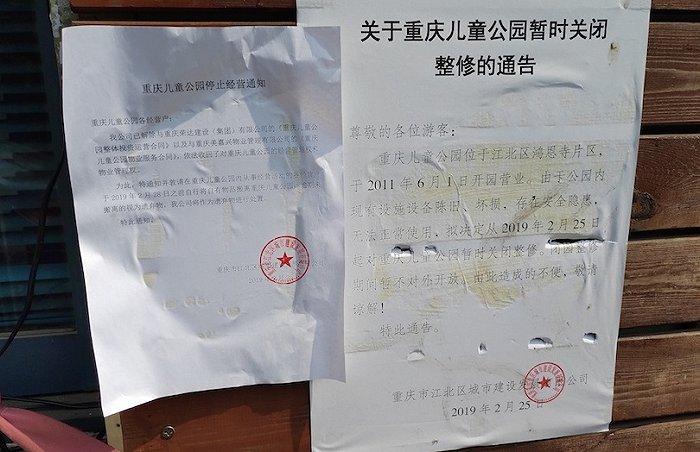 重庆儿童公园停止经营通知
重庆儿童公园各经营户：
我公司已解除与重庆荣达建设（集团）有限公司的《重庆儿童公
园整体投资运营合同》以及与重庆美嘉兴物业管理有限公司的《重庆
儿童公园物业服务合同》，依法收回了对重庆儿童公园的经营管理权和
物业管理权。
为此，特通知并敦请在重庆儿童公园内从事经营活动的各
于2019年2月28日之前自行将自有物品搬离重庆儿童公园，逾期未
搬离的视为遗弃物，我公司将作为遗弃物进行处置。
特此通知。
重庆市江北区城市建设发 公司
2019
关于重庆儿童公园暂时关闭
整修的通告
尊敬的各位游客：
重庆儿童公园位于江北区鸿恩寺片区，
于2011年6月1日开园营业。由于公园内
现有设施设备陈旧、坏损，存在安全隐患，
无法正常使用，拟决定从2019年2月25日
起对重庆儿童公园暂时关闭整修。闭园整修
期间暂不对外开放，由此造成的不便，敬请
谅解！
特此通告。
重庆市江北区城市建设发 公司
2019年2月25日